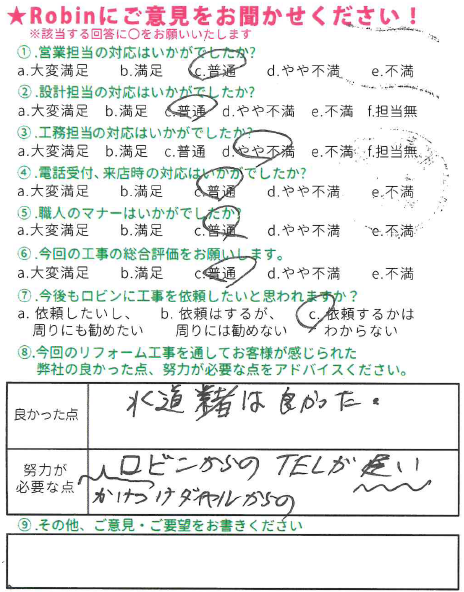 ★Robinにご意見をお聞かせください！
※該当する回答に〇をお願いいたします
①.営業担当の対応はいかがでしたか?
a.大変満足 b.満足 c.普通 d.やや不満 e.不満
②.設計担当の対応はいかがでしたか?
a.大変満足 b.満足 c.普通 d.やや不満 e.不満 f.担当無
③.工務担当の対応はいかがでしたか?
a.大変満足 b.満足 c.普通 d.やや不満 e.不満 f.担当無
④.電話受付、来店時の対応はいかがでしたか?
a.大変満足 b.満足 c.普通 d.やや不満 e.不満
⑤.職人のマナーはいかがでしたか?
a.大変満足 b.満足 c.普通 d.やや不満 e.不満
⑥.今回の工事の総合評価をお願いします。
a.大変満足 b.満足 c.普通 d.やや不満 e.不満
⑦.今後もロビンに工事を依頼したいと思われますか?
a. 依頼したいし、 b. 依頼はするが、 c. 依頼するかは
周りにも勧めたい 周りには勧めない わからない
⑧.今回のリフォーム工事を通してお客様が感じられた
弊社の良かった点、努力が必要な点をアドバイスください。
良かった点 水道業者は良かった。
努力が
必要な点
ロビンからのTELが遅い
かけつけダイヤルからの
⑨.その他、ご意見・ご要望をお書きください